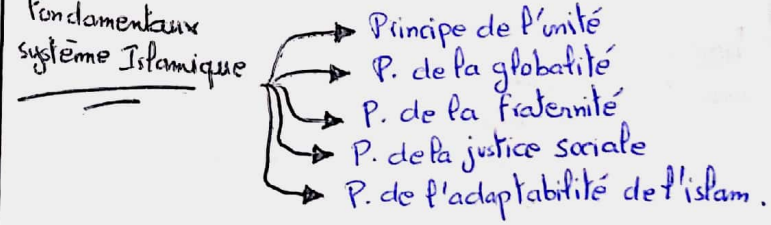 Fondamentaux
système Islamique
Principe de l'unité
P. de la globalité
P. de la fraternité
P. de la justice sociale
P. de l'adaptabilité de l'islam.